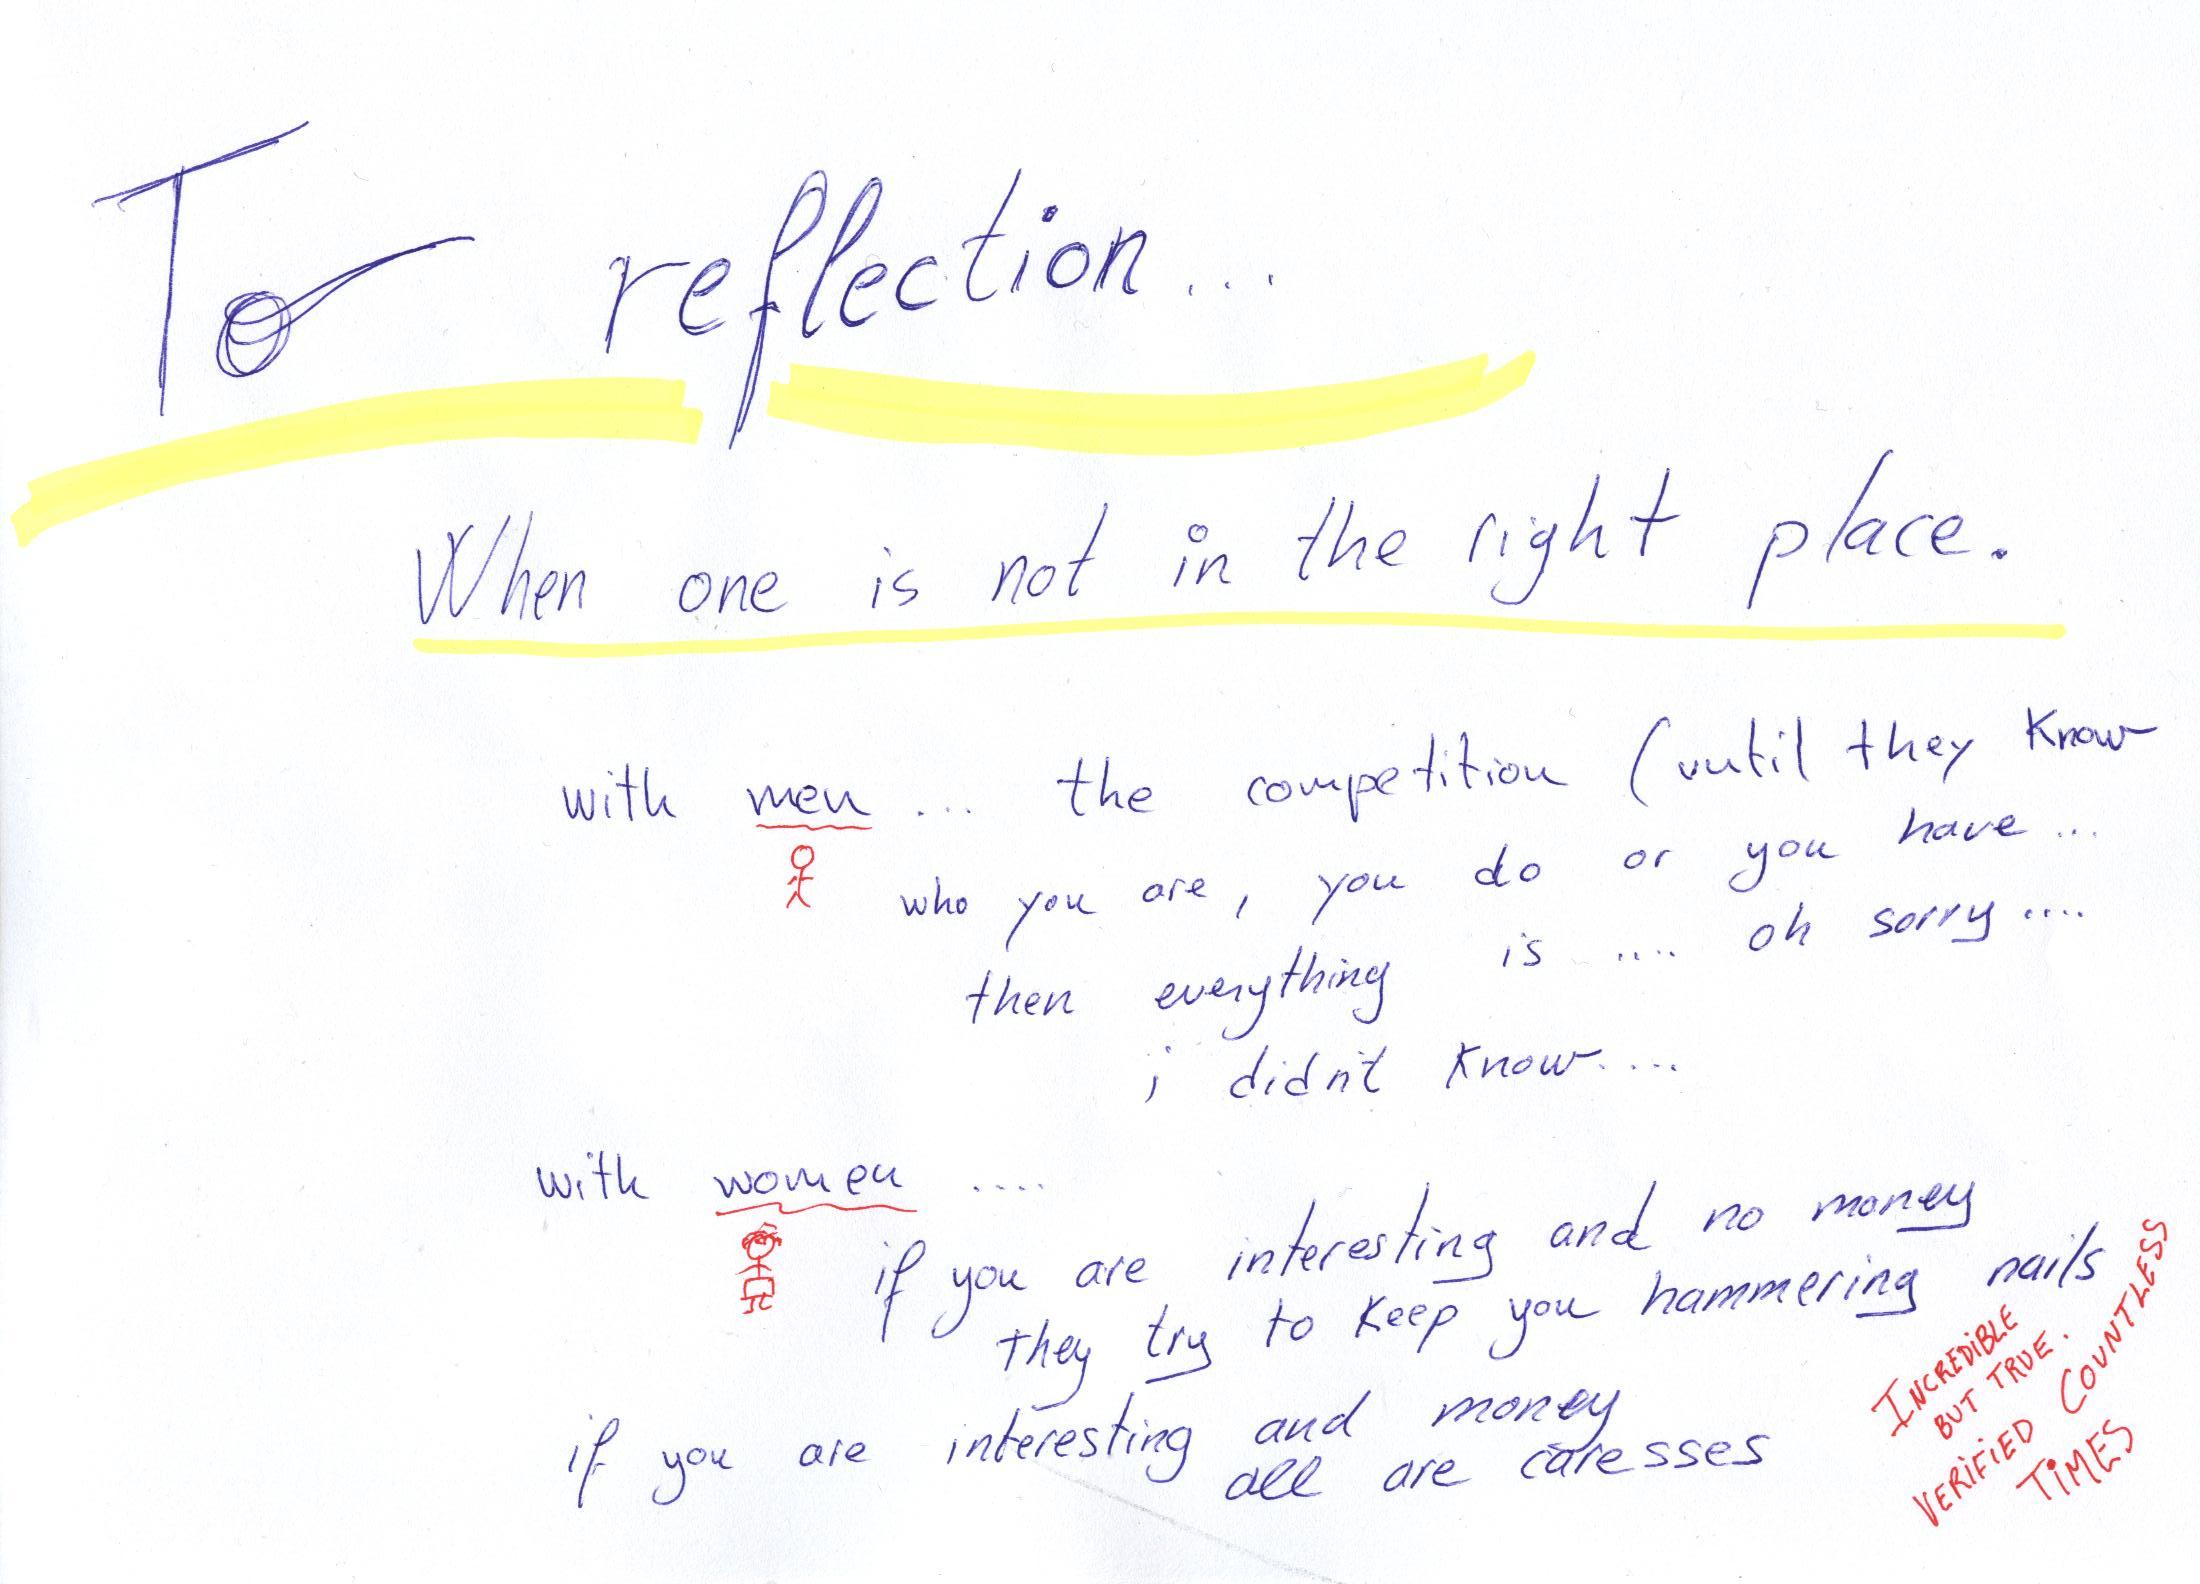 To reflection...
When one is not in the right place.
with men ... the competition (until they know
who you are, you do or you have ...
then everything is .... oh sorry ....
i didn't know ....
with women ....
if you are interesting and no money
they try to keep you hammering nails
if you are interesting and money
all are caresses
INCREDIBLE
BUT TRUE.
VERIFIED COUNTLESS
TIMES